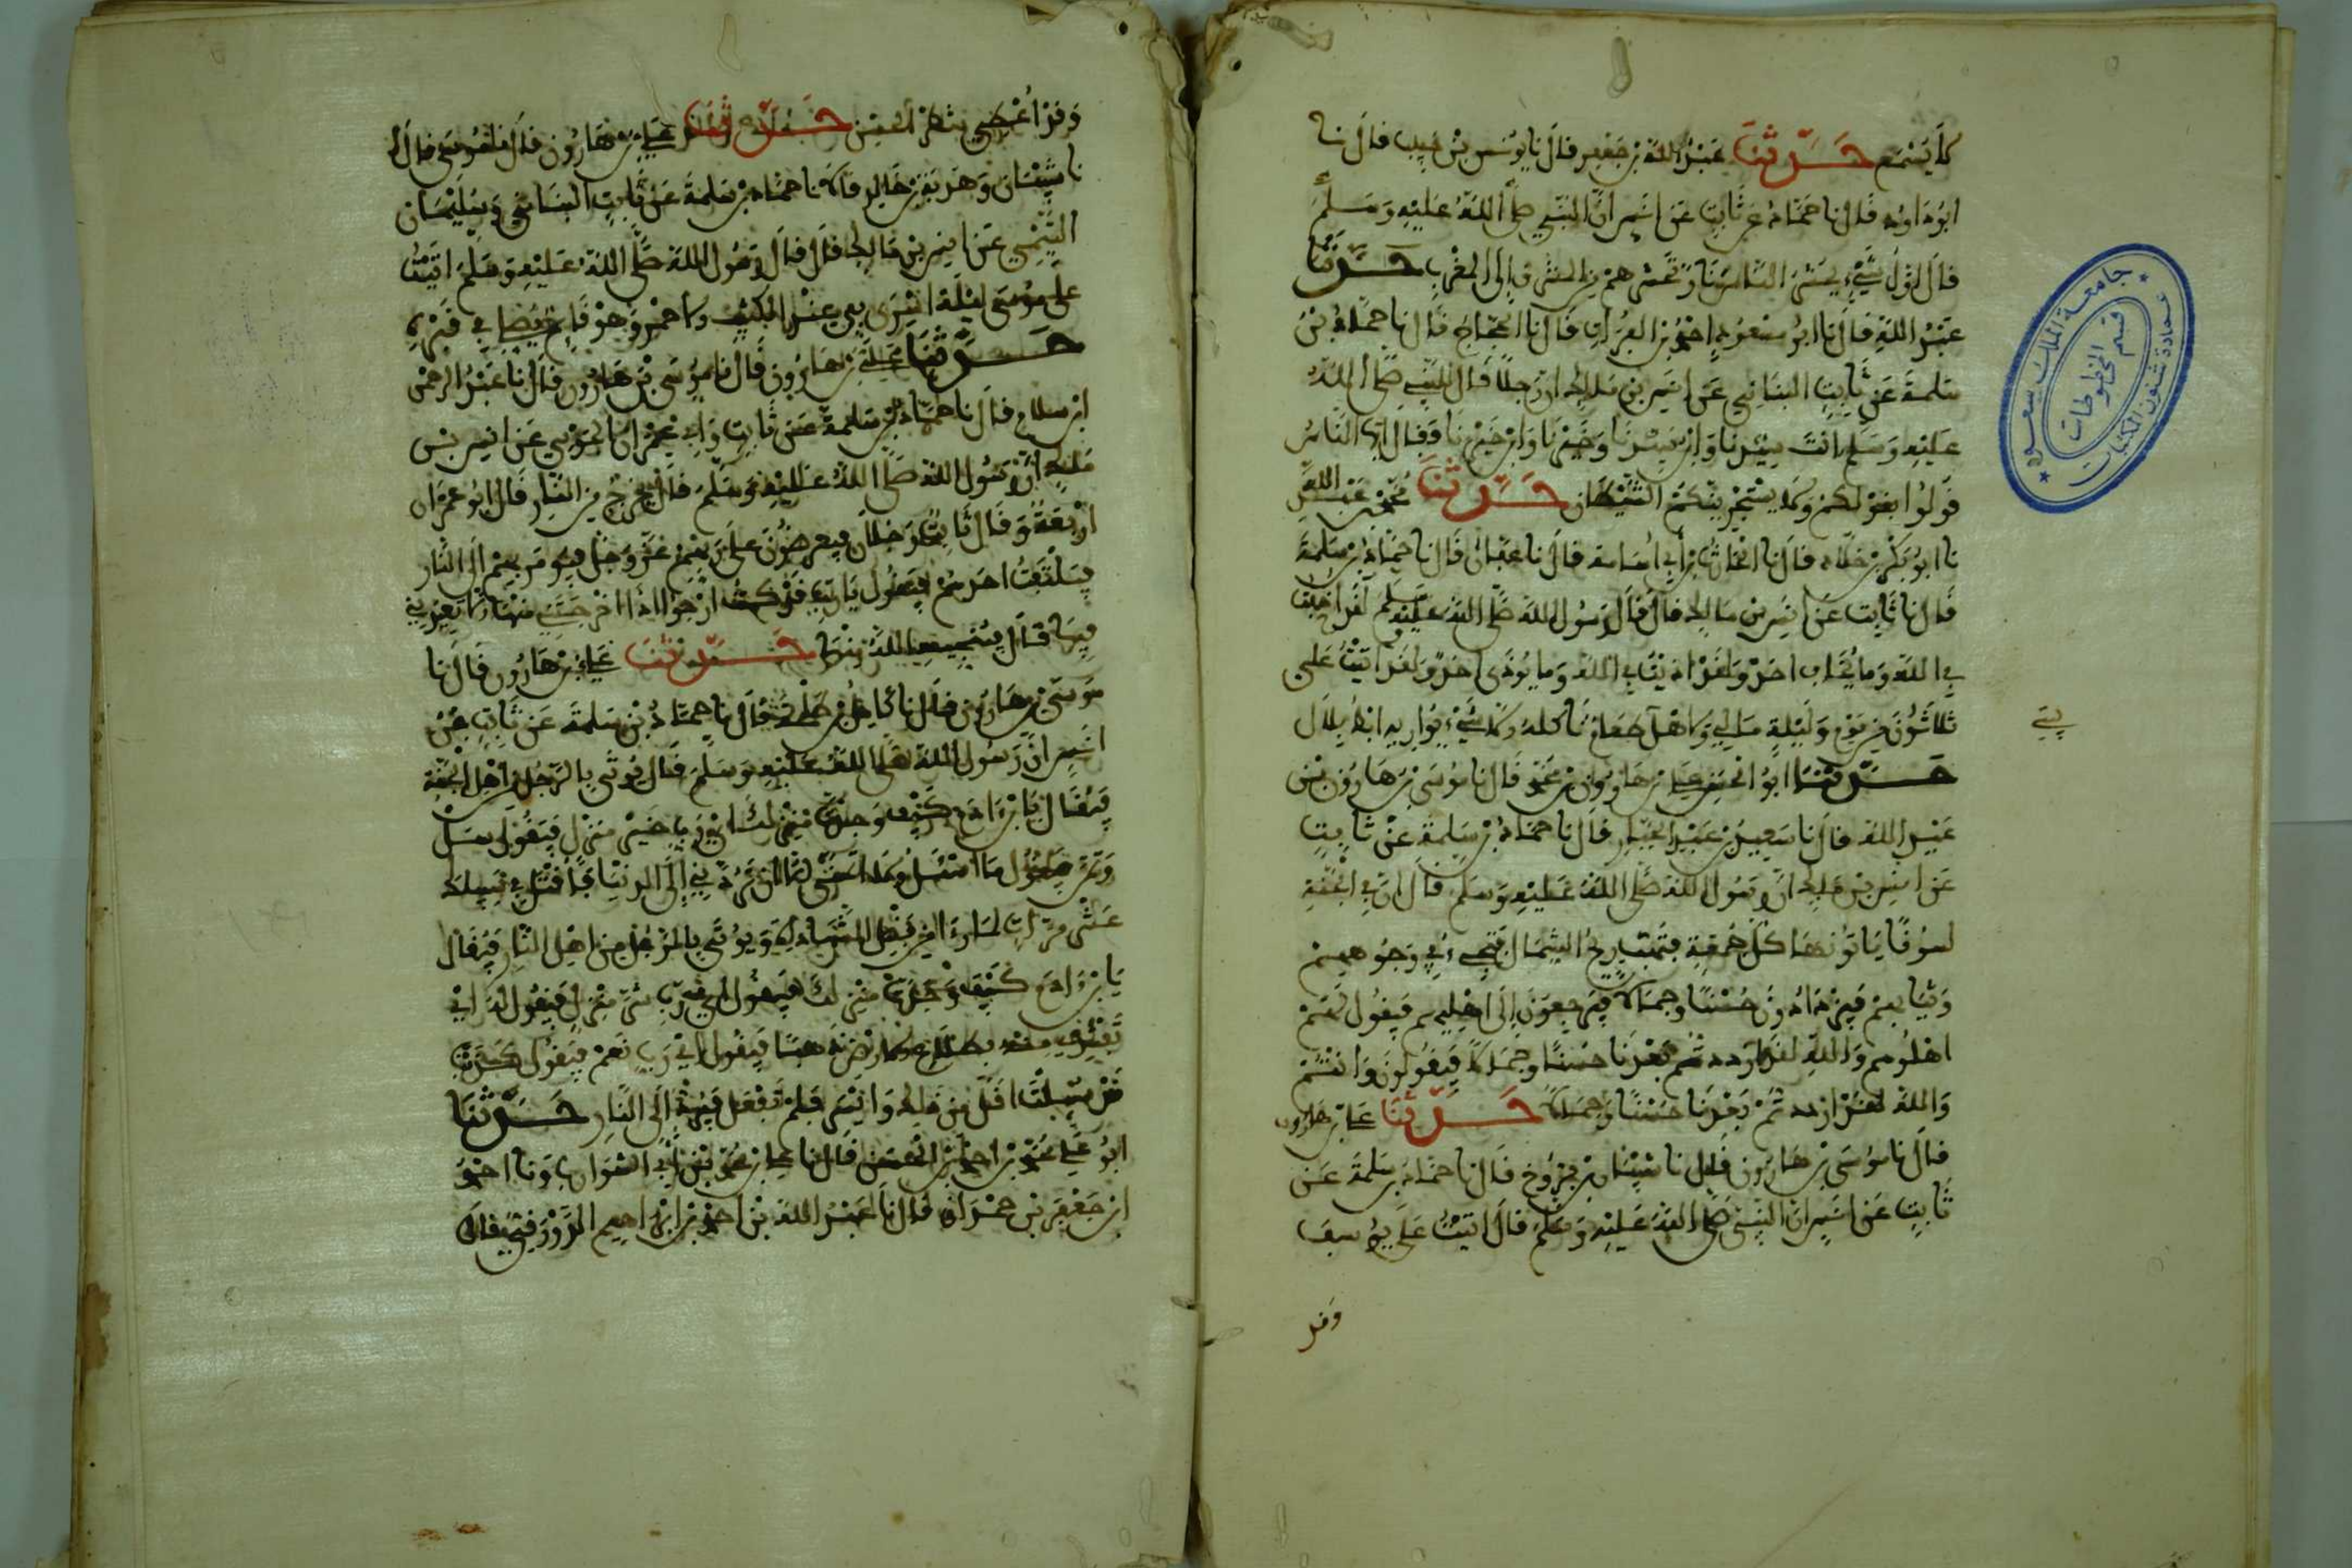 لا يسمع حدثنا عبد الله بن جعفر قال نا يونس بن حبيب قال نا
ابو داود قال نا حماد عن ثابت عن انس ان النبي صلى الله عليه وسلم
قال اول شيء يحشر الناس نار تحشرهم من المشرق الى المغرب حدثنا
عبد الله قال نا ابو مسعود احمد بن الفرات قال نا الحجاج قال نا حماد بن
سلمة عن ثابت البناني عن انس بن ملك ان رجلا قال للنبي صلى الله
عليه وسلم انت سيدنا وابن سيدنا وخيرنا وابن خيرنا فقال يا ايها الناس
قولوا بقولكم ولا يستجرينكم الشيطان حدثنا محمد بن عبد الله
نا ابو بكر بن خلاد قال نا الحارث بن أبي أسامة قال نا عفان قال نا حماد بن سلمة
قال نا ثابت عن انس بن مالك قال قال رسول الله صلى الله عليه وسلم لقد اخفت
في الله وما يخاف احد ولقد اذيت في الله وما يوذى احد ولقد اتيت علي
ثلاثون من يوم وليلة ما لي ولاهل طعام ناكله ولا شيء يواريه ابط بلال
بيتي
حدثنا ابو الحسن علي بن هارون بن محمد قال نا موسى بن هارون بن
عبد الله قال نا سعيد بن عبد الجبار قال نا حماد بن سلمة عن ثابت
عن انس بن ملك ان رسول الله صلى الله عليه وسلم قال ان في الجنة
لسوقا ياتونها كل جمعة فتهب ريح الشمال فتحثي في وجوههم
وثيابهم فيزدادون حسنا وجمالا فيرجعون إلى اهليهم فيقول لهم
اهلوهم والله لقد ازددتم بعدنا حسنا وجمالا فيقولون وانتم
والله لقد ازددتم بعدنا حسنا وجمالا حدثنا علي بن هارون
قال نا موسى بن هارون قال نا شيبان بن فروخ قال نا حماد بن سلمة عن
ثابت عن انس ان النبي صلى الله عليه وسلم قال اتيت على يوسف
وقد
وقد أعطي شطر الحسن حدثنا علي بن هارون قال نا موسى قال
نا شيبان وهدبة بن خالد قالا نا حماد بن سلمة عن ثابت البناني وسليمان
التيمي عن انس بن مالك قال قال رسول الله صلى الله عليه وسلم اتيت
على موسى ليلة اسري بي عند الكثيب الاحمر وهو قايم يصلي في قبره
حدثنا علي بن هارون قال نا موسى بن هارون قال نا عبد الرحمن
ابن سلام قال نا حماد بن سلمة عن ثابت وابي عمران الجوني عن انس بن
ملك ان رسول الله صلى الله عليه وسلم قال يخرج من النار قال ابو عمران
اربعة وقال ثابت رجلان فيعرضون على ربهم عز وجل فيومر بهم الى النار
فيلتفت احدهم فيقول يا رب قد كنت ارجوا اذا اخرجتني منها ان لا تعيدني
فيها قال فينجيه الله منها حدثنا علي بن هارون قال نا
موسى بن هارون قال نا كامل بن طلحة قال نا حماد بن سلمة عن ثابت عن
انس ان رسول الله صلى الله عليه وسلم قال يوتى بالرجل من اهل الجنة
فيقال يا ابن ادم كيف وجدت منزلك اي رب خير منزل فيقول سل
وتمن فيقول ما اسئل ولا اتمنى الا ان تردني إلى الدنيا فاقتل في سبيلك
عشر مرات لما راى من فضل الشهادة ويوتى بالرجل من اهل النار فيقال
يا ابن ادم كيف وجدت منزلك فيقول اي رب شر منزل فيقول له اني
تفتدي منه بطلاع الارض ذهبا فيقول اي رب نعم فيقول كذبت
قد سيلت اقل من ذلك وايسر فلم تفعل فيرد الى النار حدثنا
ابو علي محمد بن احمد بن الحسن قال نا علي بن محمد بن أبي الشوارب ونا احمد
ابن جعفر بن حمدان قال نا عبد الله بن احمد بن ابراهيم الدورقي قالا
جامعة الملك سعود
عمادة شئون المكتبات
قسم المخطوطات